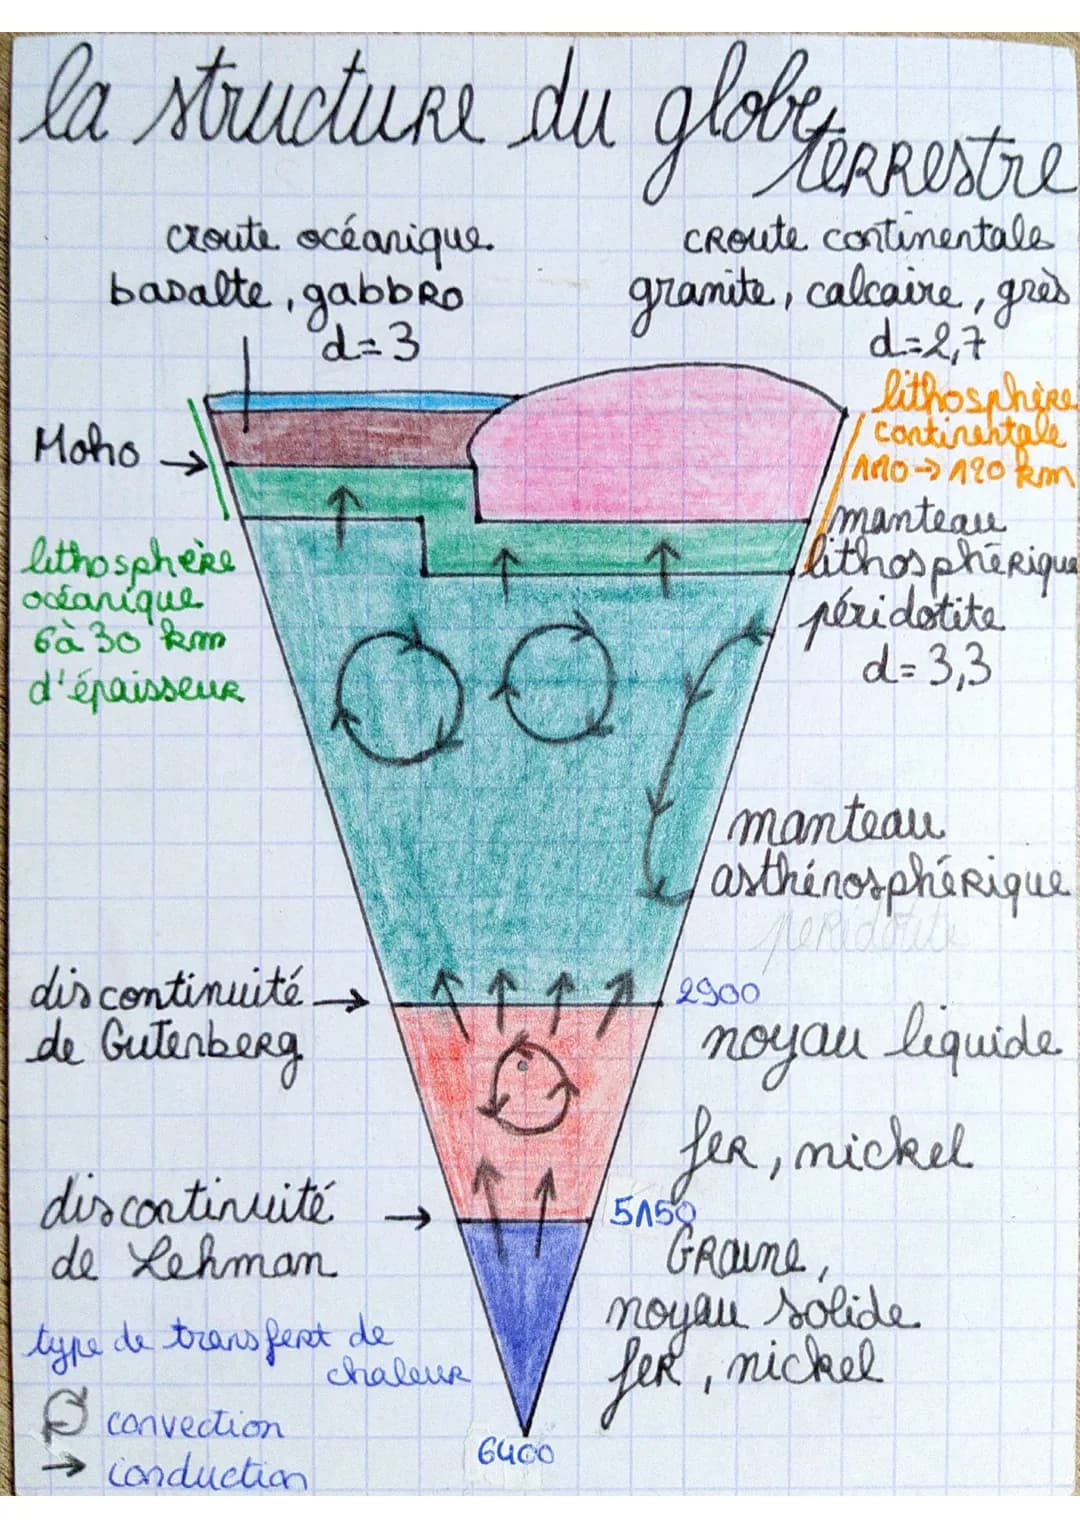 la structure du globe
terrestre
croute océanique
basalte, gabbro
d=3
croute continentale
granite, calcaire, grès
d=2,7
lithosphère
continentale
110→120 km
Moho
manteau
lithosphérique
péridotite
d=3,3
lithosphère
océanique
6 à 30 km
d'épaisseur
manteau
asthénosphérique
peridotite
discontinuité
de Gutenberg
2900
noyau liquide
fer, nickel
discontinuité
de Lehman
5150
Graine,
noyau solide
fer, nickel
type de transfert de
chaleur
convection
conduction
6400